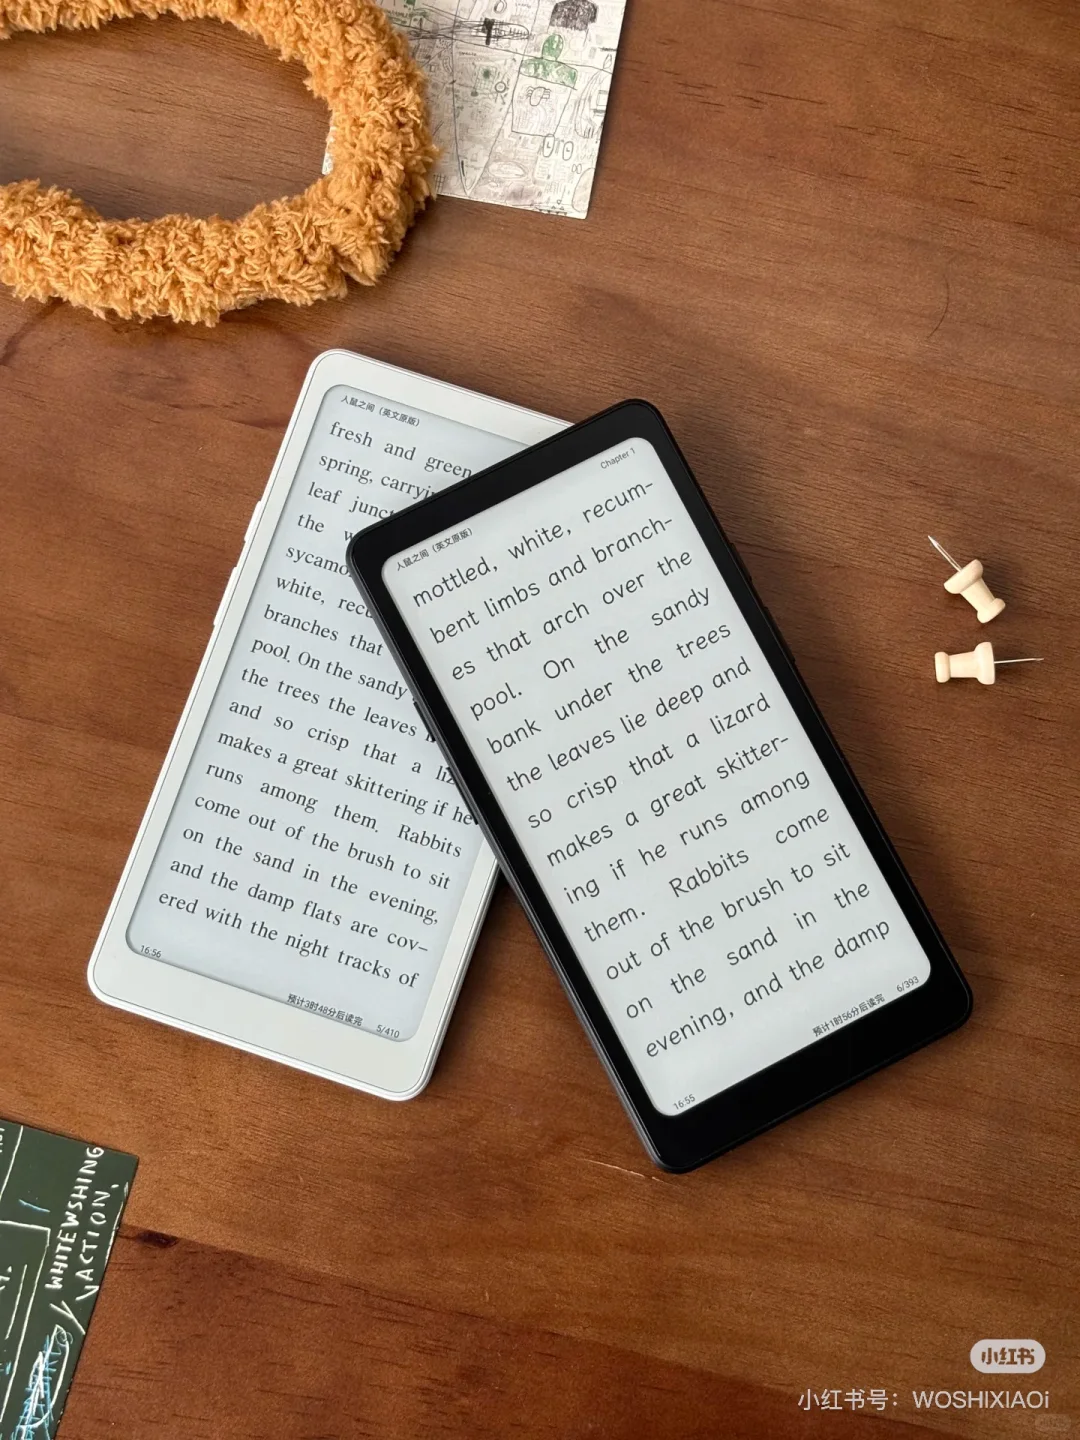 人鼠之间（英文原版）
fresh and green
spring,
leaf
the
white,
branches that
pool. On the sandy
the trees the leaves
and so crisp that a
makes a great skittering if he
runs among them. Rabbits
come out of the brush to sit
on the sand in the evening,
and the damp flats are cov–
ered with the night tracks of
16:56
预计3时48分后读完
5/410
人鼠之间（英文原版）
Chapter 1
mottled, white, recum–
bent limbs and branch–
es that arch over the
pool. On the sandy
bank under the trees
the leaves lie deep and
so crisp that a lizard
makes a great skitter–
ing if he runs among
them. Rabbits come
out of the brush to sit
on the sand in the
evening, and the damp
16:55
预计1时56分后读完
6/393
WHITEWSHING
VACTION.
小红书
小红书号：WOSHIXIAOi